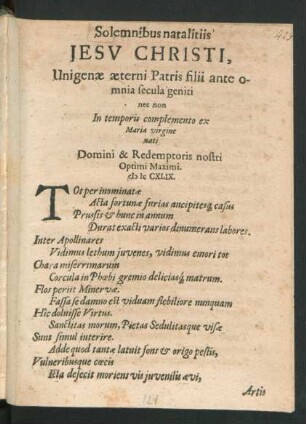 Solemnibus natalitiis
JESV CHRISTI,
Unigenæ æterni Patris filii ante o-
mnia secula geniti
nec non
In temporis complemento ex
Maria virgine
nati
Domini & Redemptoris nostri
Optimi Maximi.
TOt per inominatæ
Acta fortunæ furias ancipitesq́ casus
Prussis & hunc in annum
Durat exacti varios dinumerans labores.
Inter Apollinares
Vidimus lethum juvenes, vidimus emori tot
Chara miserrimarum
Corcula in Phœbi gremio deliciasq́ matrum.
Flos periit Minervæ.
Fassa se damno est viduam flebiliore nunquam
Hic doluisse Virtus.
Sanctitas morum, Pietas Sedulitasque visæ
Sunt simul interire.
Adde quod tantæ latuit fons & origo pestis,
Vulneribusque cœcis
Icta dejecit moriens vis juvenilis ævi,
Artis